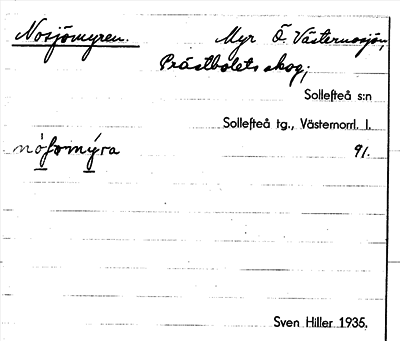 Nosjömyren. Myr Ö. Västernosjön,
Prästbolets skog;
Sollefteå s:n
Sollefteå tg., Västernorrl. l.
91.
Sven Hiller 1935.